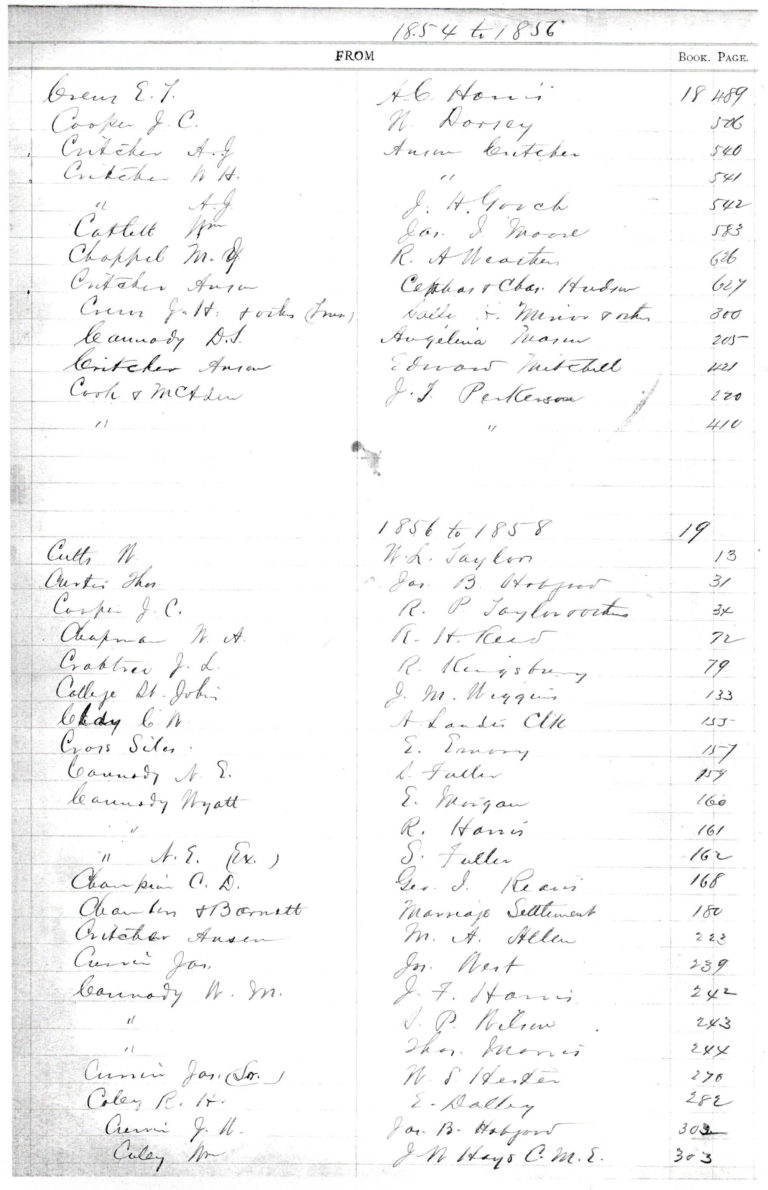 1854 to 1856
FROM BOOK. PAGE.
Crews E. T. A. C. Harris 18 489
Cooper J. C. N Dorsey 506
Critcher A. J Anson Critcher 540
Critcher W H. " 541
" A. J. J. H. Gooch 542
Catlett Wm Jas. I Moore 583
Chappel M. R. A Weathers 626
Critcher Anson Cephas & Chas. Hudson 627
Crews J. H. & others Minor & others 300
Cannady D. S. Angelina Mason 205
Critcher Anson Edward Mitchell 421
Cook & McAden J. T. Perkerson 220
" " 410
1856 to 1858 19
Cutts W W. L. Taylor 13
Curtis Thos Jas. B. Hobgood 31
Cooper J. C. R. P. Taylor & others 34
Chapman W. A. R. H. Read 72
Crabtree J. L. R. Kingsbury 79
College St. Johns J. M. Wiggins 133
C W A Landis Clk 155
Cross Silas. E. Emory 157
Cannady N. E. S. Fuller 159
Cannady Wyatt E. Morgan 160
" R. Harris 161
" N. E. (Ex.) S. Fuller 162
Champion C. D. Geo. I. Reavis 168
Chambers & Barnett Marriage Settlement 180
Critcher Anson M. A. Allen 223
Currin Jas. Jn. West 239
Cannady W. M. J. F. Harris 242
" S. P. Wilson 243
" Thos. Morris 244
Currin Jas. (Sr.) W. S Hester 270
Coley R. H. E. Dalby 282
Currin J. W. Jas. B. Hobgood 303
Coley Wm J W Hays C. M. E. 303